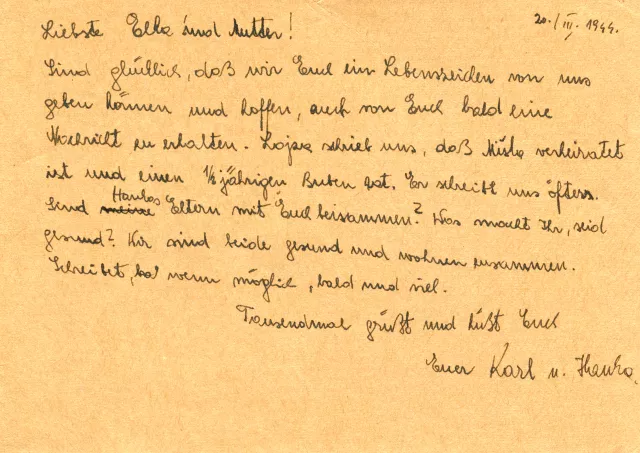 20./III. 1944.
Liebste Elka und Mutter!
Sind glücklich, daß wir Euch ein Lebenszeichen von uns
geben können und hoffen, auch von Euch bald eine
Nachricht zu erhalten. Lojza schrieb uns, daß Miška verheiratet
ist und einen 1½ jährigen Buben hat. Er schreibt uns öfters.
Hankas
Send meine Eltern mit Euch beisammen? Was macht Ihr, seid
gesund? Wir sind beide gesund und wohnen zusammen.
Schreibet, wenn möglich, bald und viel.
Tausendmal grüßt und küßt Euch
Euer Karl u. Hanka.